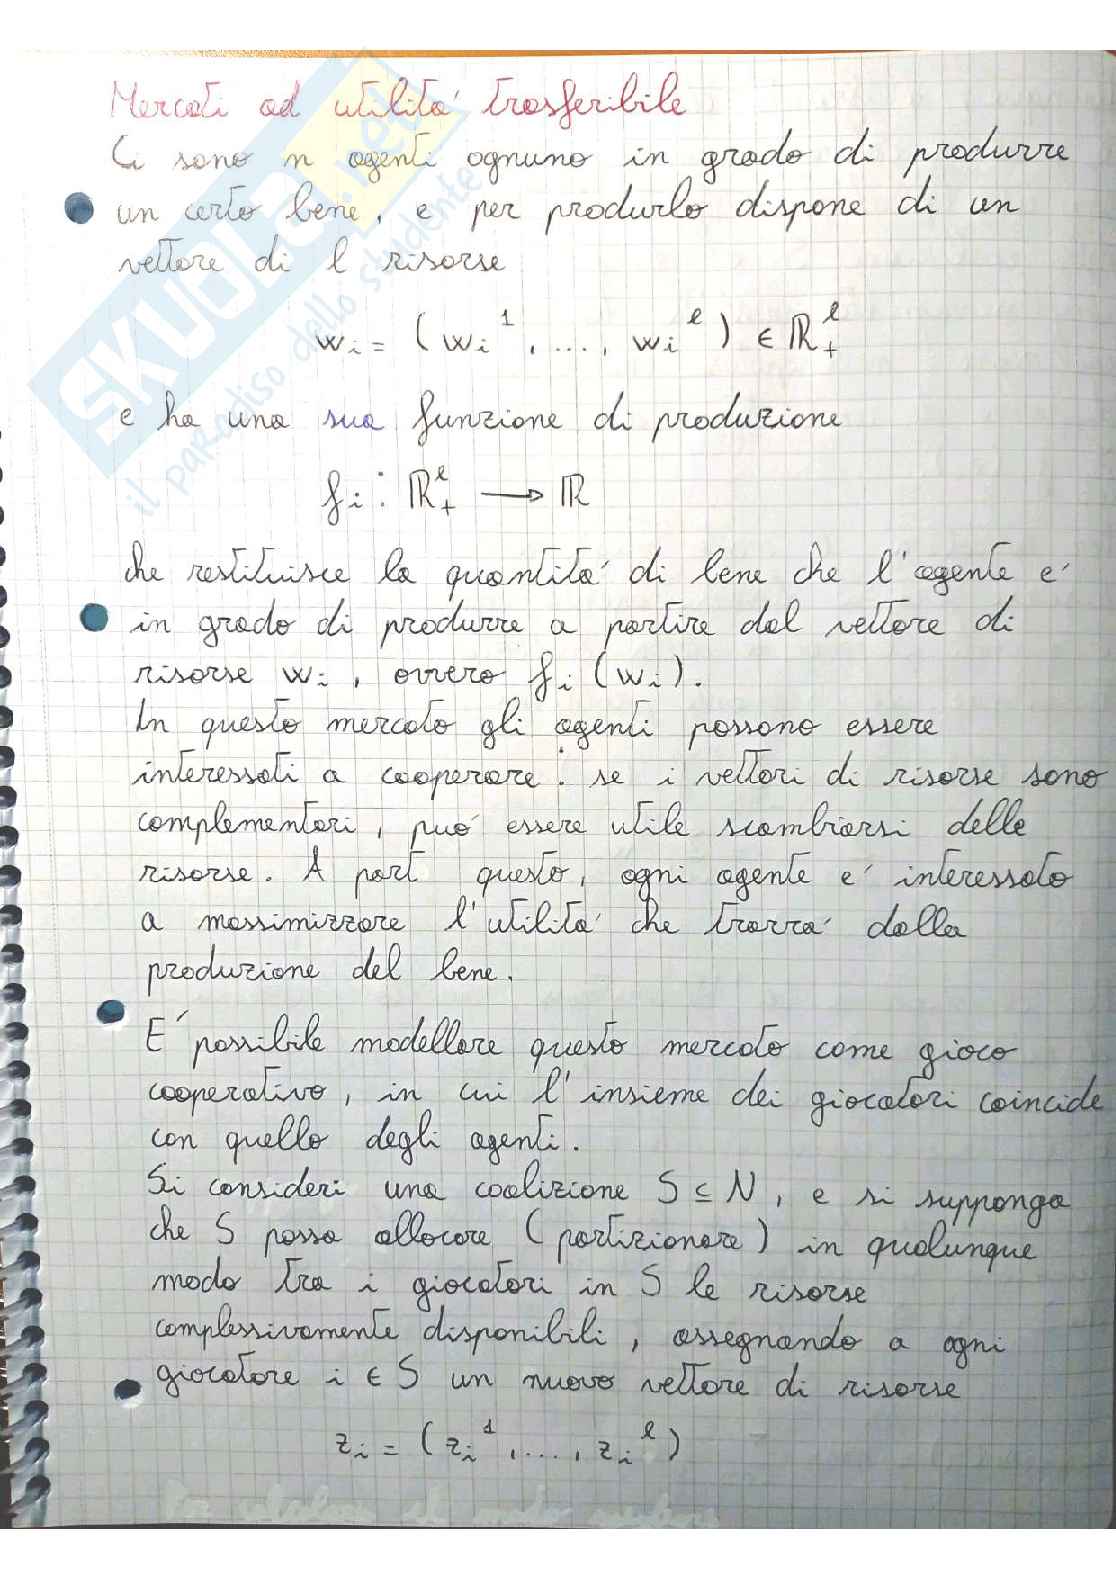 Mercati ad utilitá trasferibile
Ci sono n agenti ognuno in grado di produrre
un certo bene, e per produrlo dispone di un
vettore di l risorse
wi = (wi¹, ..., wiˡ) ∈ ℝˡ₊
e ha una sua funzione di produzione
fi : ℝˡ₊ → ℝ
che restituisce la quantitá di bene che l'agente é
in grado di produrre a partire dal vettore di
risorse wi, ovvero fi (wi).
In questo mercato gli agenti possono essere
interessati a cooperare: se i vettori di risorse sono
complementari, puó essere utile scambiarsi delle
risorse. A part questo, ogni agente é interessato
a massimizzare l'utilitá che trarrá dalla
produzione del bene.
É possibile modellare questo mercato come gioco
cooperativo, in cui l'insieme dei giocatori coincide
con quello degli agenti.
Si consideri una coalizione S ⊆ N, e si supponga
che S possa allocare (partizionare) in qualunque
modo tra i giocatori in S le risorse
complessivamente disponibili, assegnando a ogni
giocatore i ∈ S un nuovo vettore di risorse
zi = (zi¹, ..., ziˡ)
SKUOLA.net
il paradiso dello studente